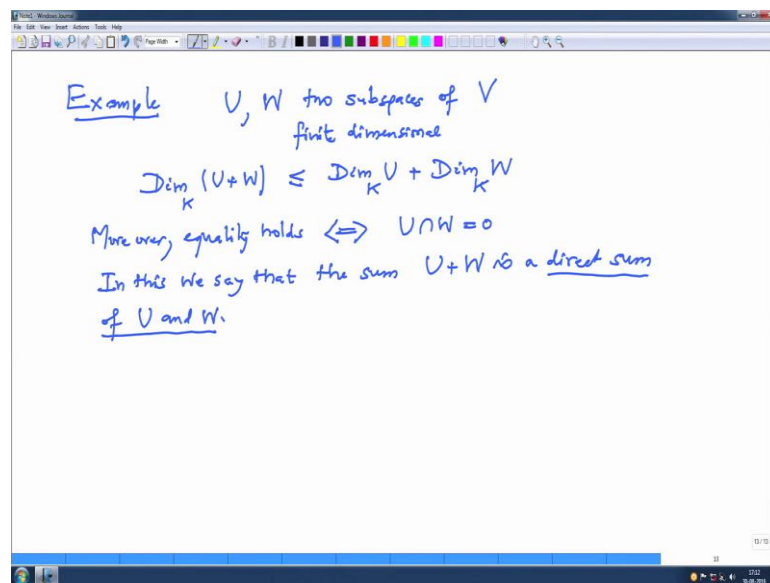 Note1 - Windows Journal
File Edit View Insert Actions Tools Help
Page Width
Example U, W two subspaces of V
finite dimensional
Dim_K (U+W) ≤ Dim_K U + Dim_K W
Moreover, equality holds <=> U∩W = 0
In this we say that the sum U+W is a direct sum
of U and W.
13/13
18
17:12